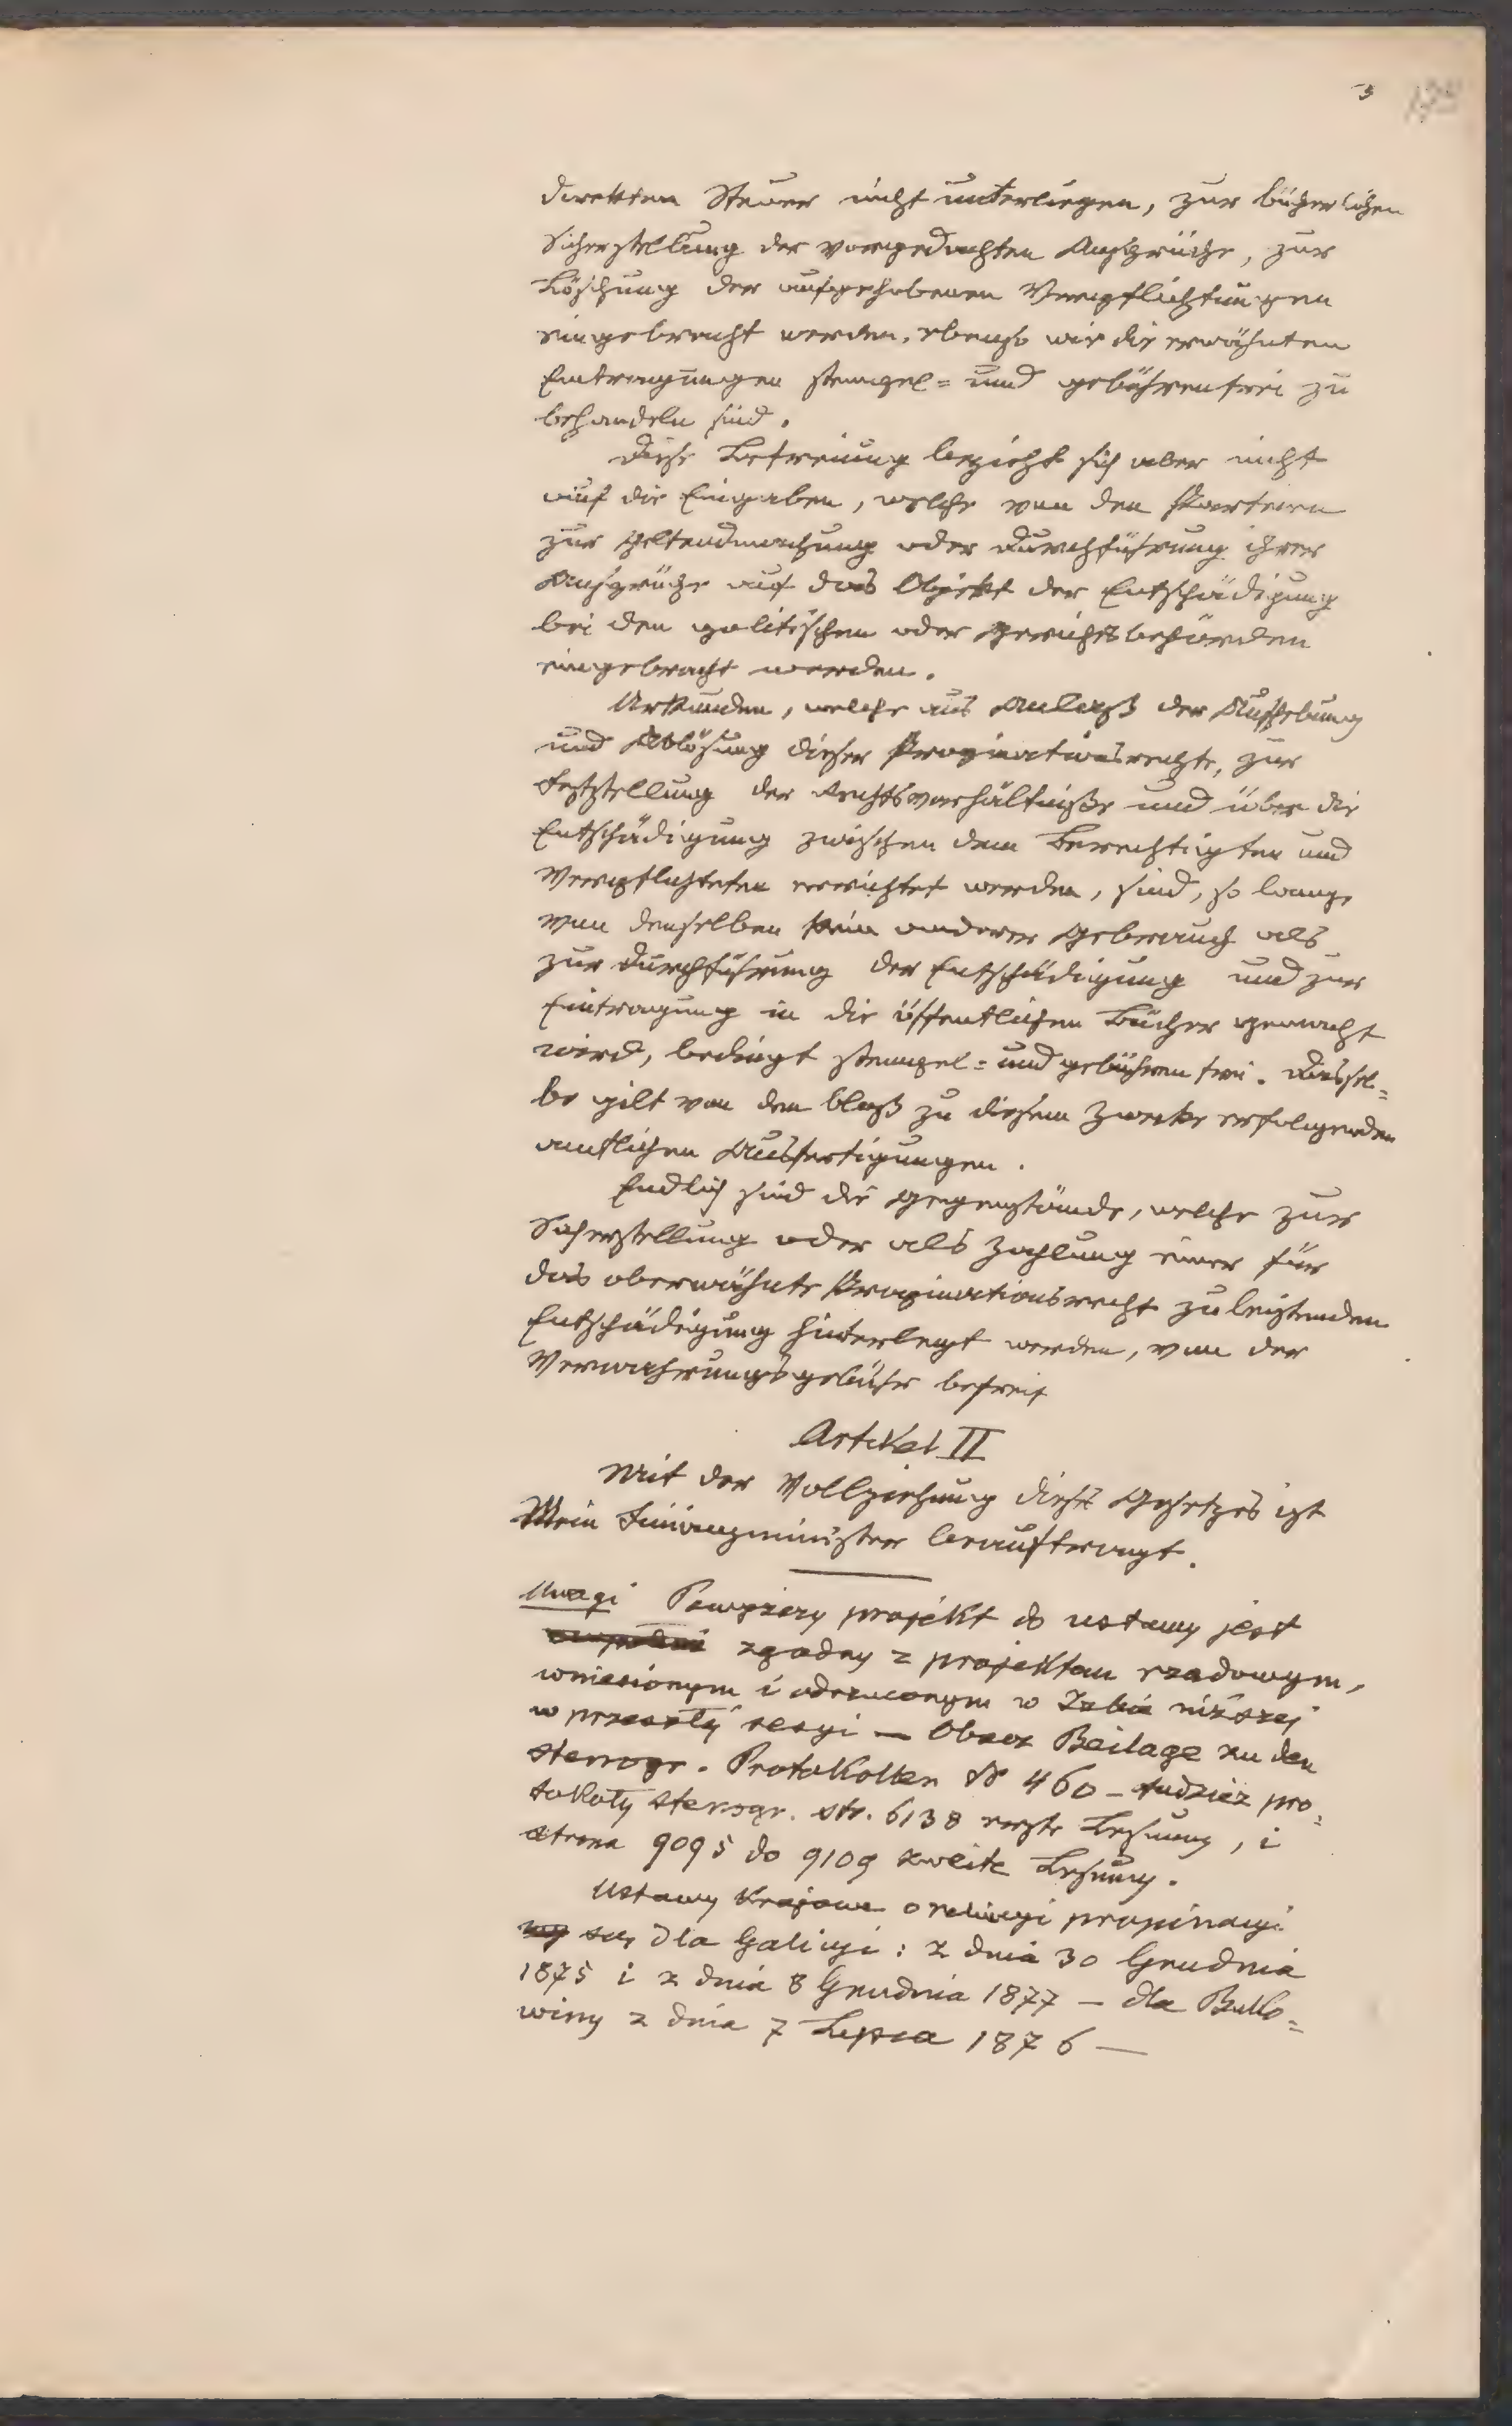 3
direkten Steuer nicht unterliegen, zur bücherlichen
Sicherstellung der vorgedachten Ansprüche, zur
Löschung der aufgehobenen Verpflichtungen
eingebracht werden, ebenso wie die erwähnten
Eintragungen stempel= und gebührenfrei zu
behandeln sind.
Diese Befreiung bezieht sich aber nicht
auf die Eingaben, welche von den Parteien
zur Geltendmachung oder Durchführung ihrer
Ansprüche auf das Objekt der Entschädigung
bei den politischen oder Gerichtsbehörden
eingebracht werden.
Urkunden, welche aus Anlaß der Aufhebung
und Ablösung dieser Propinationsrechte, zur
Feststellung der Rechtsverhältniße und über die
Entschädigung zwischen dem Berechtigten und
Verpflichteten errichtet werden, sind, so lange
von denselben kein anderer Gebrauch als
zur Durchführung der Entschädigung und zur
Eintragung in die öffentlichen Bücher gemacht
wird, bedingt stempel= und gebührenfrei. Dassel=
be gilt von den bloß zu diesem Zwecke erfolgenden
amtlichen Ausfertigungen.
Endlich sind die Gegenstände, welche zur
Sicherstellung oder als Zahlung einer für
das oberwähnte Propinationsrecht zu leistenden
Entschädigung hinterlegt werden, von der
Verwahrungsgebühr befreit
Artikel II
Mit der Vollziehung dieses Gesetzes ist
Mein Finanzminister beauftragt.
Uwagi Powyższy projekt do ustawy jest
zgodny z projektem rządowym,
wniesionym i odrzuconym w Izbie niższej
w przeszłej sesyi — Obacz Beilage zu den
Stenogr. Protokollen № 460 – tudzież pro=
tokoły stenogr. str. 6138 erste Lesung, i
strona 9095 do 9109 zweite Lesung.
Ustawy krajowe o reluicyi propinacyi
są dla Galicyi: z dnia 30 Grudnia
1875 i z dnia 8 Grudnia 1877 — dla Buko=
winy z dnia 7 Lipca 1876 —